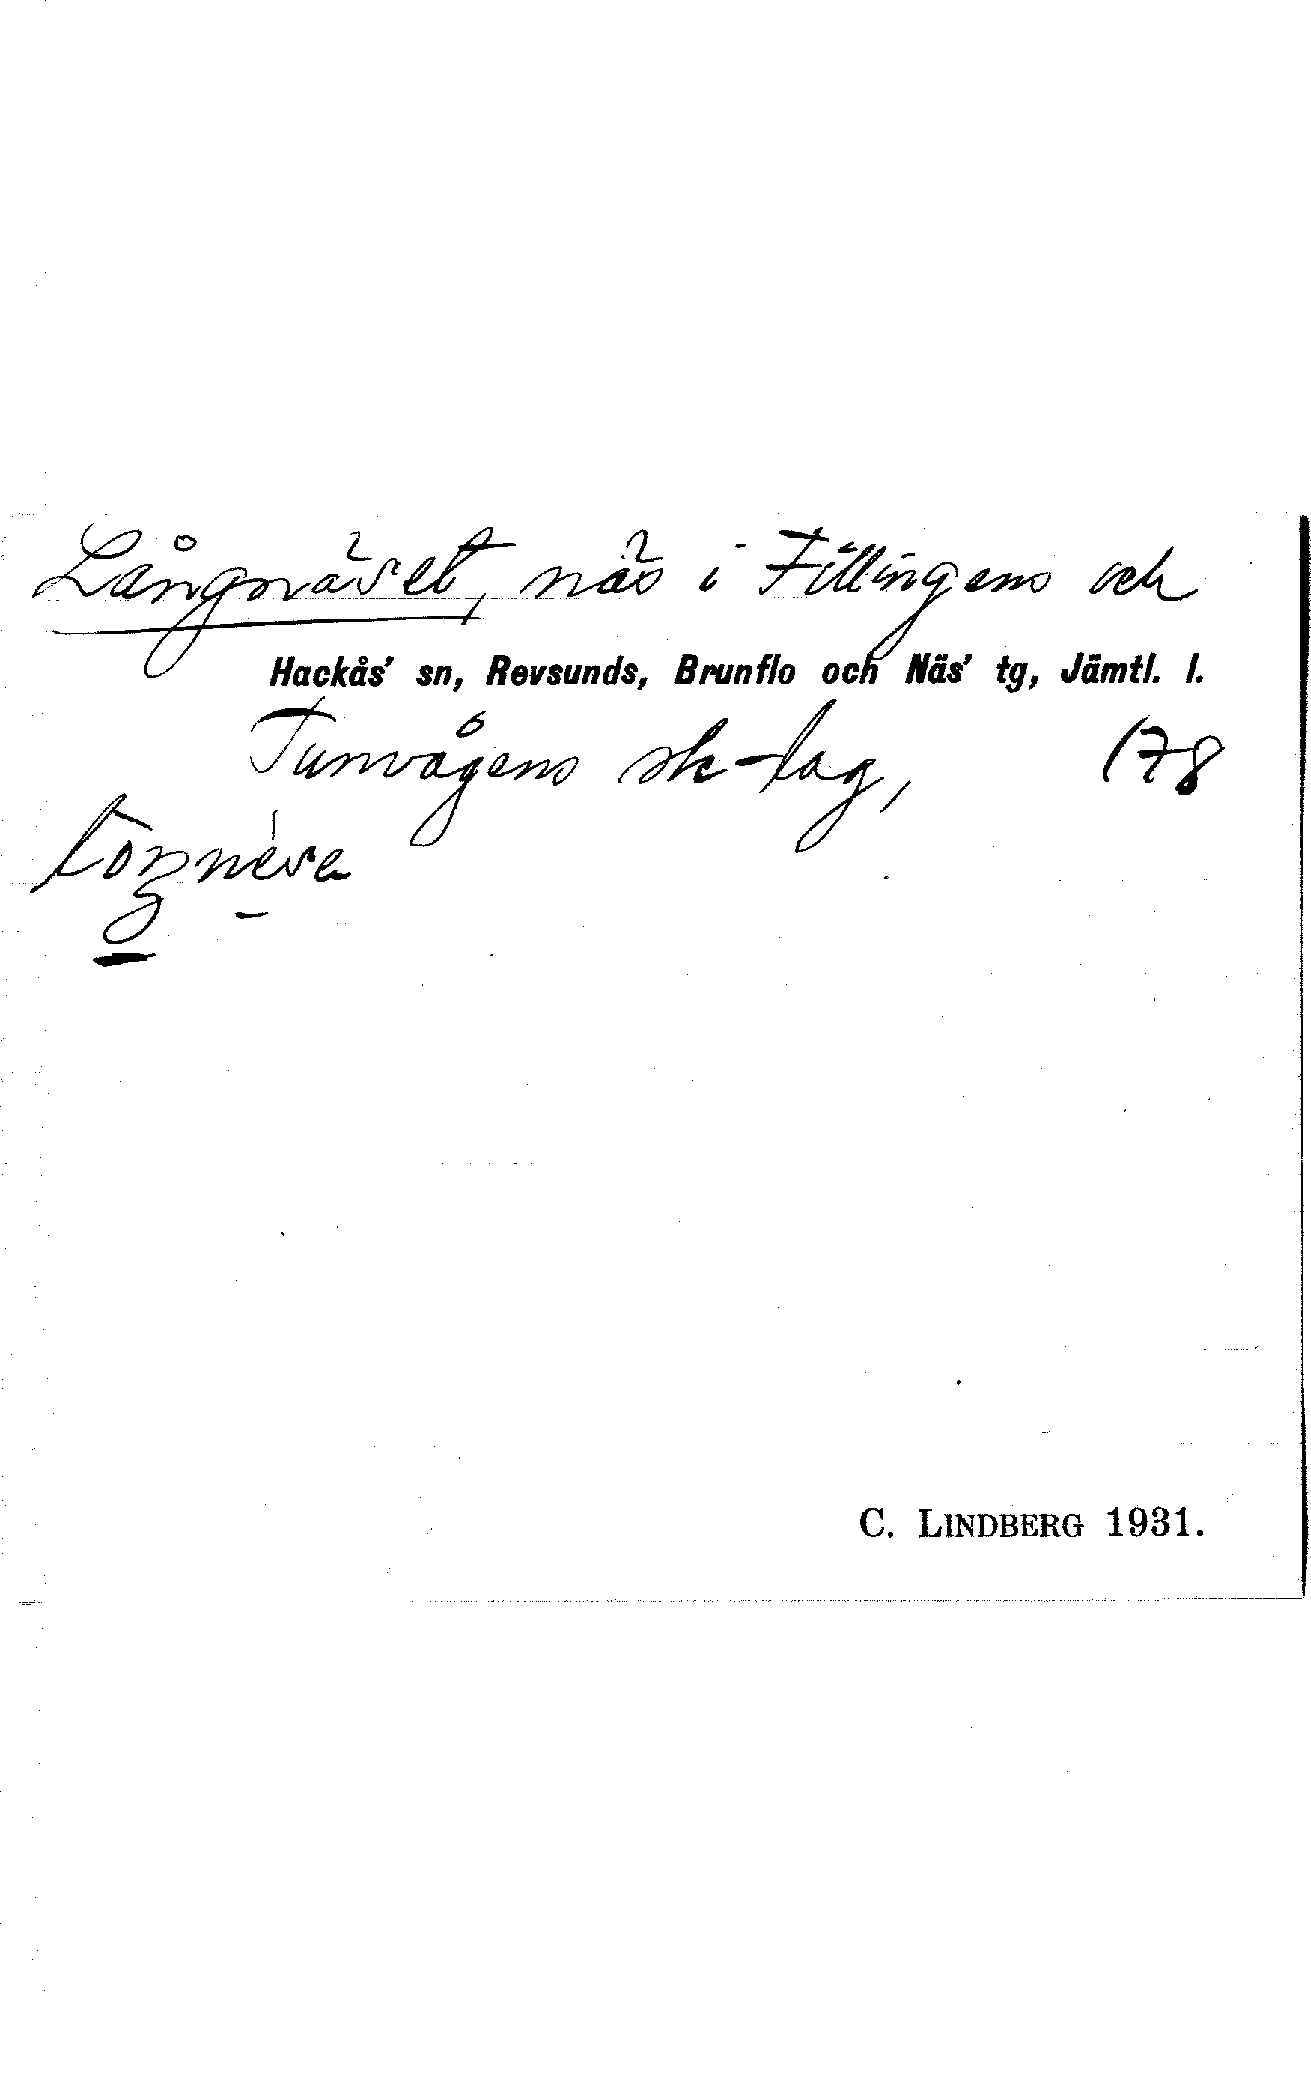 Långnäset, näs i Fillingens och
Hackås' sn, Revsunds, Brunflo och Näs' tg, Jämtl. l.
Tunvågens sk-lag, (78
C. LINDBERG 1931.